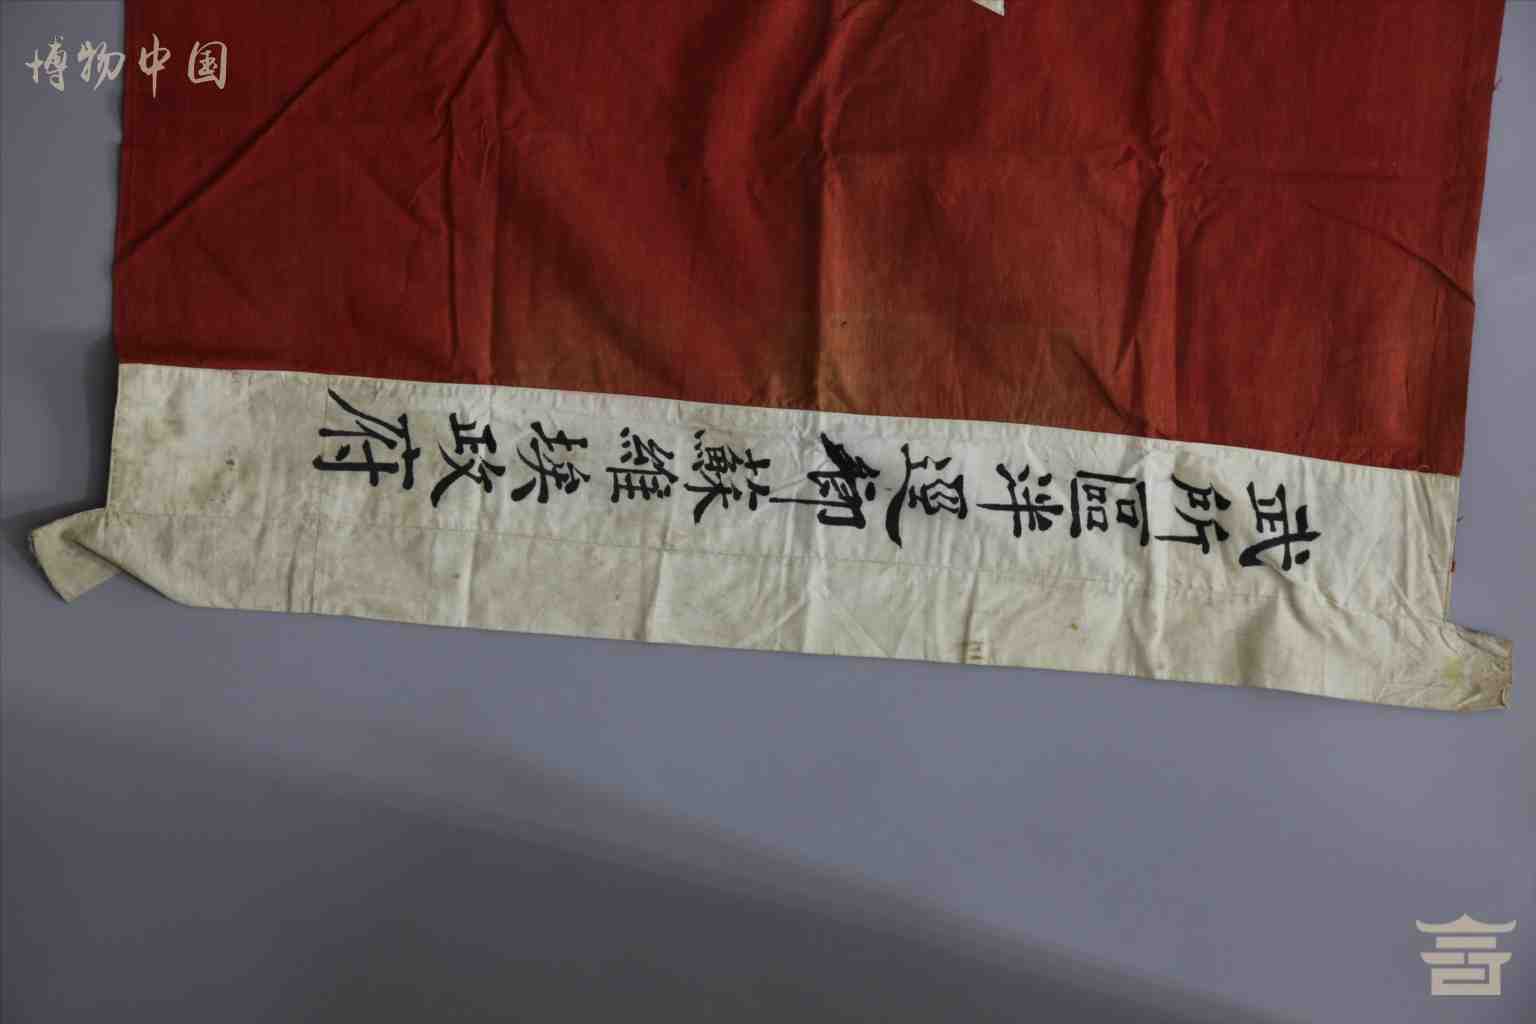 博物中国
武所區洋逕鄉蘇維埃政府